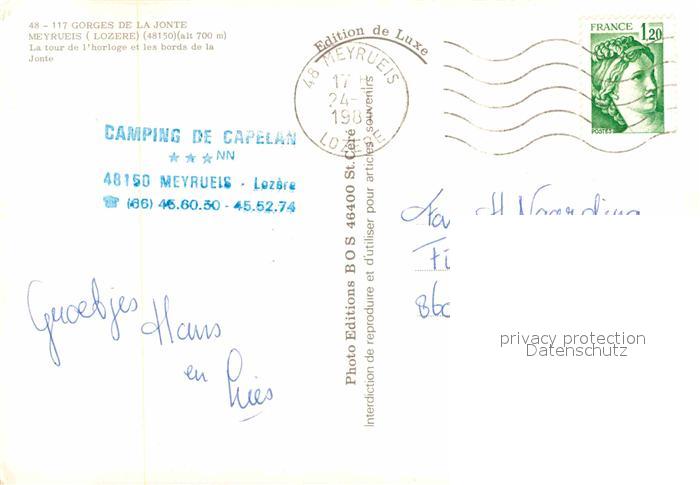 48 - 117 GORGES DE LA JONTE
MEYRUEIS ( LOZERE) (48150)(alt 700 m)
La tour de l'horloge et les bords de la
Jonte
Edition de Luxe
48 MEYRUEIS
17 H
24-
198
LOZERE
FRANCE
1,20
POSTES
CAMPING DE CAPELAN
★★★NN
48150 MEYRUEIS - Lozère
☎ (66) 45.60.50 - 45.52.74
Photo Editions BOS 46400 St.Céré
Interdiction de reproduire et d'utiliser pour articles souvenirs
Groetjes Hans
en Mies
Fa
Fi
860
privacy protection
Datenschutz